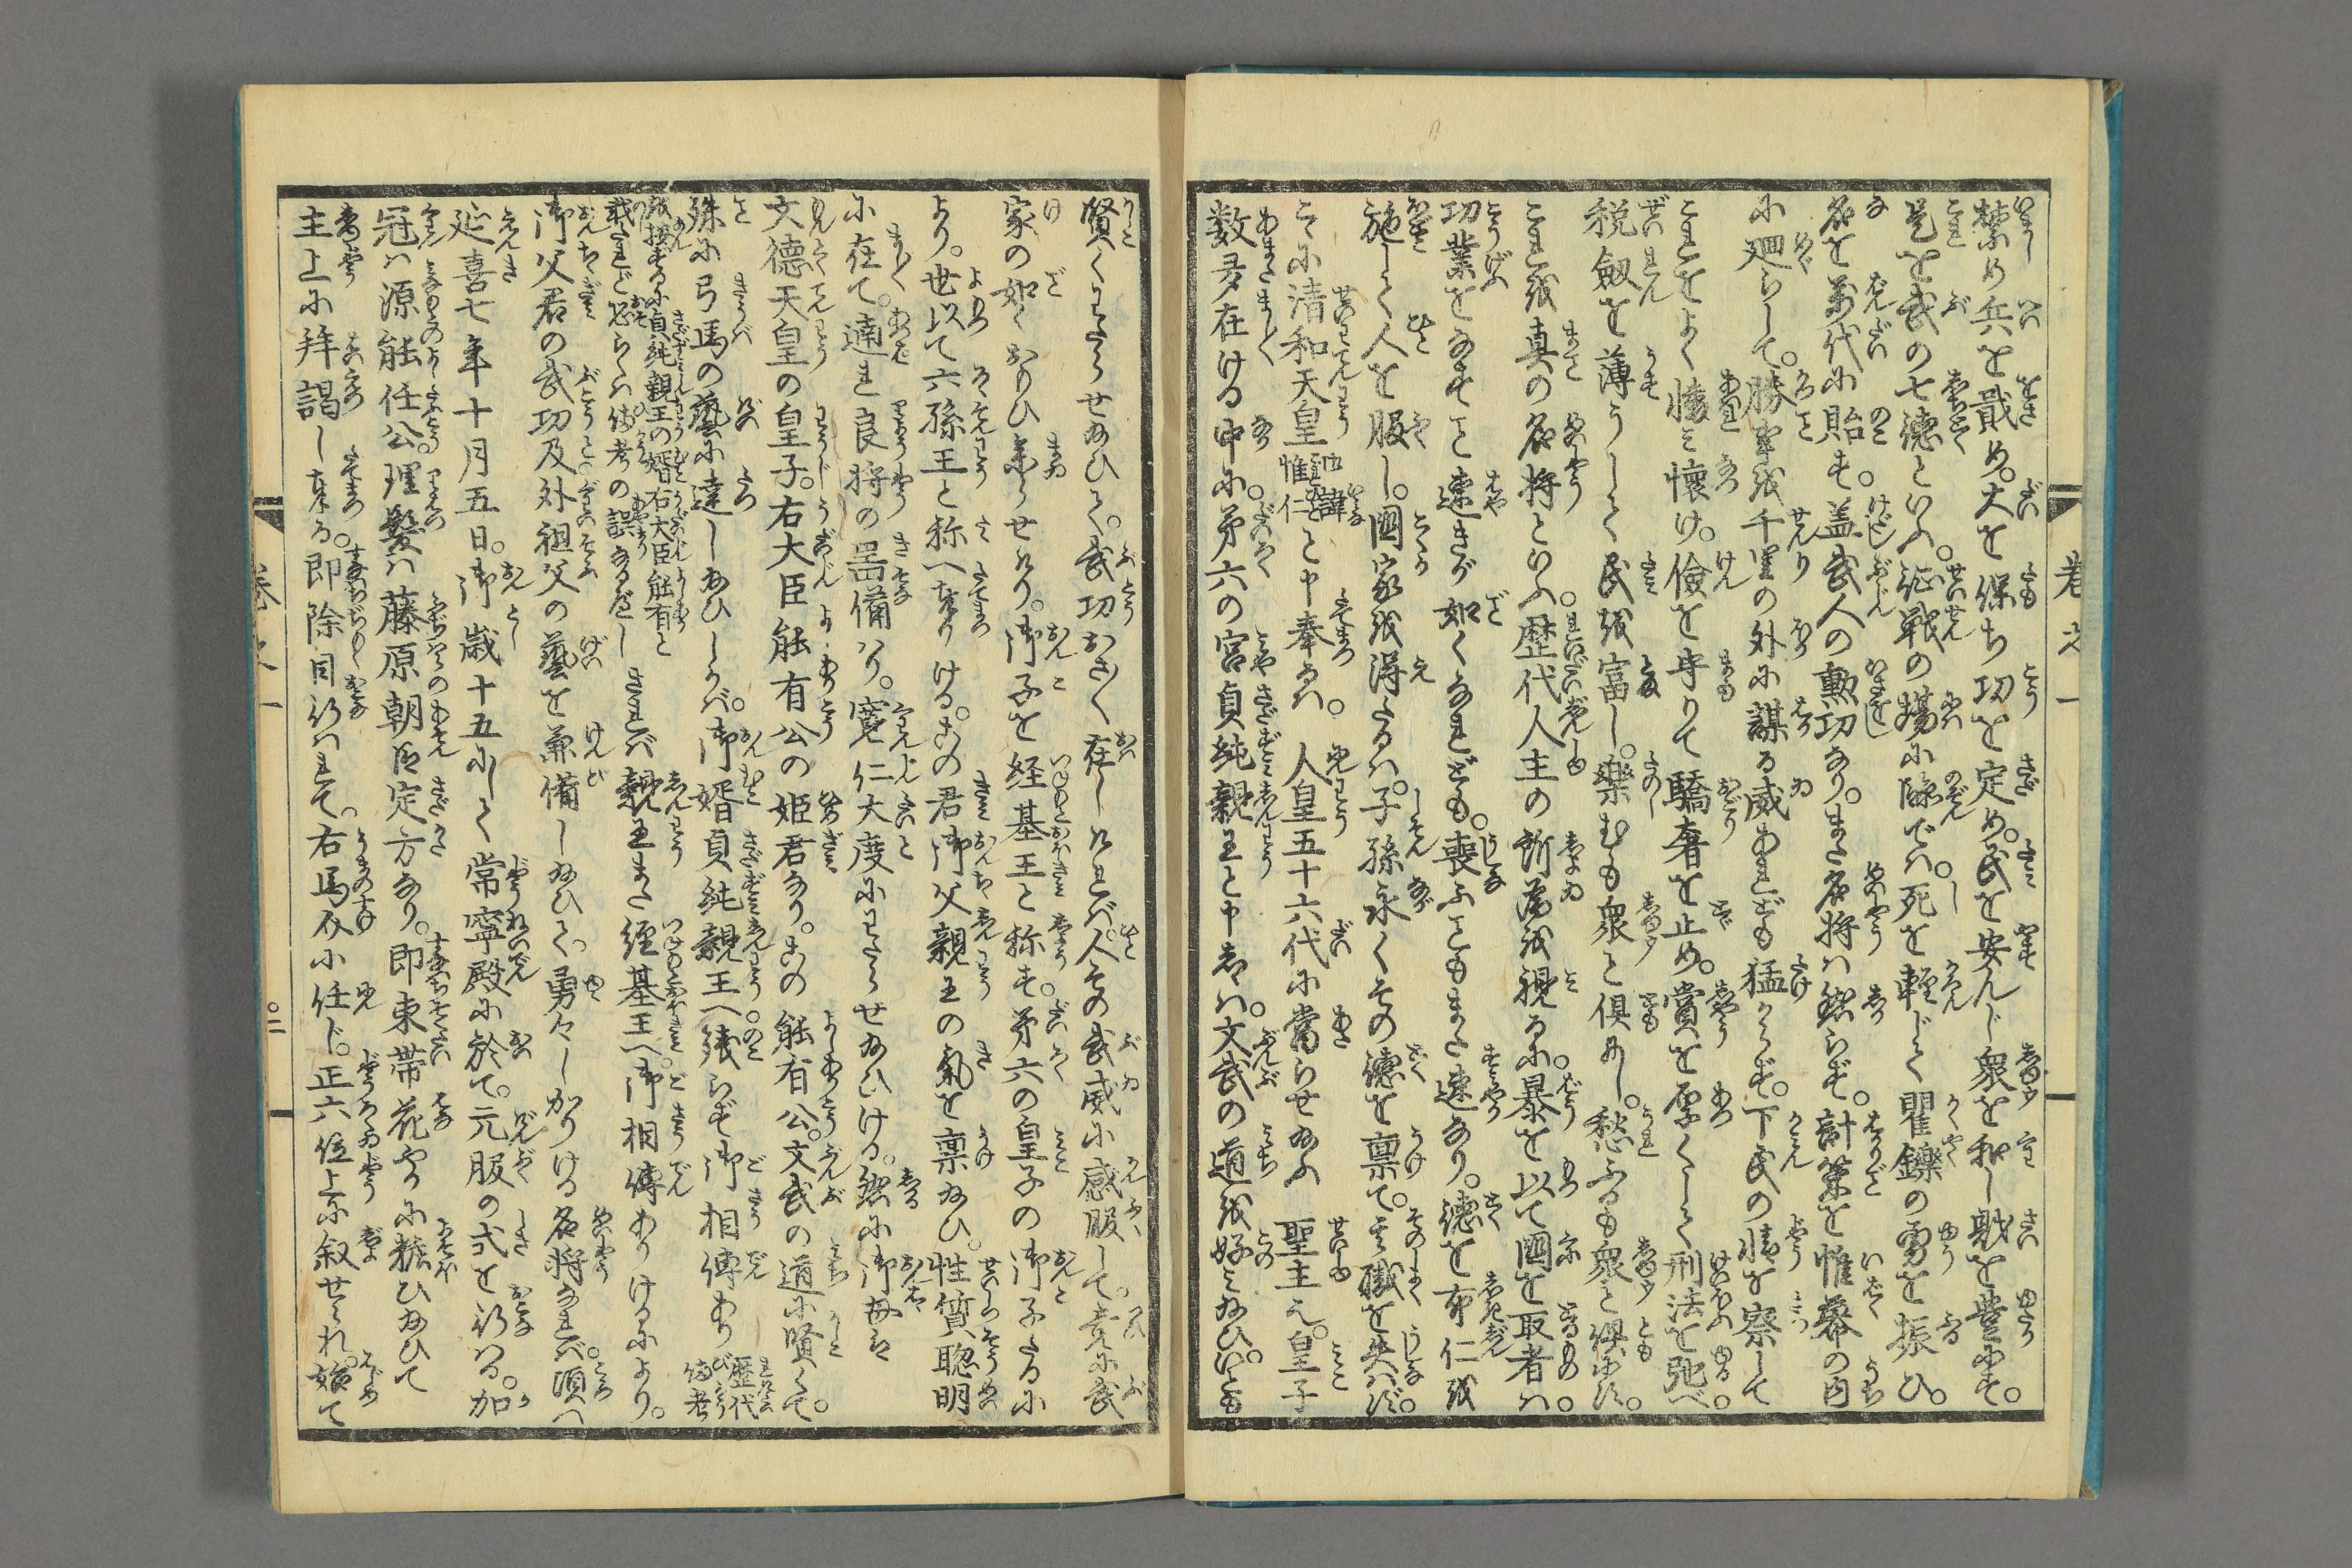 巻之一
禁め兵を戢め。大を保ち功を定め。民を安んじ衆を和し財を豊にす。
是を武の七徳といふ。征戦の場に臨では。死を軽じて矍鑠の勇を振ひ。
名を萬代に貽す。盖武人の勲功なり。また名将は然らず。計策を惟幕の内
に廻らして。勝事を千里の外に謀る威あれども猛からず。下民の情を察して
これをよく憐み懐け。倹を守りて驕奢を止め。賞を厚くして刑法を弛べ。
税斂を薄うして民を富し。楽むも衆と倶にし。愁ふるも衆と倶にす。
これを真の名将といふ。歴代人主の所為を視るに。暴を以て國を取者は。
功業をなすこと速きが如くなれども。喪ふこともまた速なり。徳を布仁を
施して人を服し。國家を得たるは。子孫永くその徳を禀て。其職を失はず。
こゝに清和天皇諱惟仁と申奉るは。人皇五十六代に當らせ給ふ聖主也。皇子
数多在ける中に。第六の宮貞純親王と申者は。文武の道を好み給ひ。いとも
賢くわたらせ給ひて。武功おほく在しければ。人その武威に感服して。素に武
家の如くおもひ参らせけり。御子を経基王と称す。第六の皇子の御子たるに
より。世以て六孫王と称へ奉りける。この君御父親王の氣を禀給ひ。性質聡明
に在て。遖れ良将の器備はり。寛仁大度にわたらせ給ひける。然に御母は
文徳天皇の皇子。右大臣能有公の姫君なり。この能有公。文武の道に賢くて。
殊に弓馬の藝に達し給ひしかば。御婿貞純親王へ残らず御相傳あり 歴代備考
を按するに貞純親王の婿右大臣能有と
載たれど恐らくは備考の誤なるべし されば親王また經基王へ。御相傳ありけるにより。
御父君の武功及外祖父の藝を兼備し給ひて。勇々しかりける名将なれば。頃へ
延喜七年十月五日。御歳十五にして常寧殿に於て。元服の式を行はる。加
冠は源能任公。理髪は藤原朝臣定方なり。即束帯花やかに粧ひ給ひて
主上に拝謁し奉る。即除目行はれて。右馬介に任じ。正六位上に叙せられ。始て
巻之一
〇二